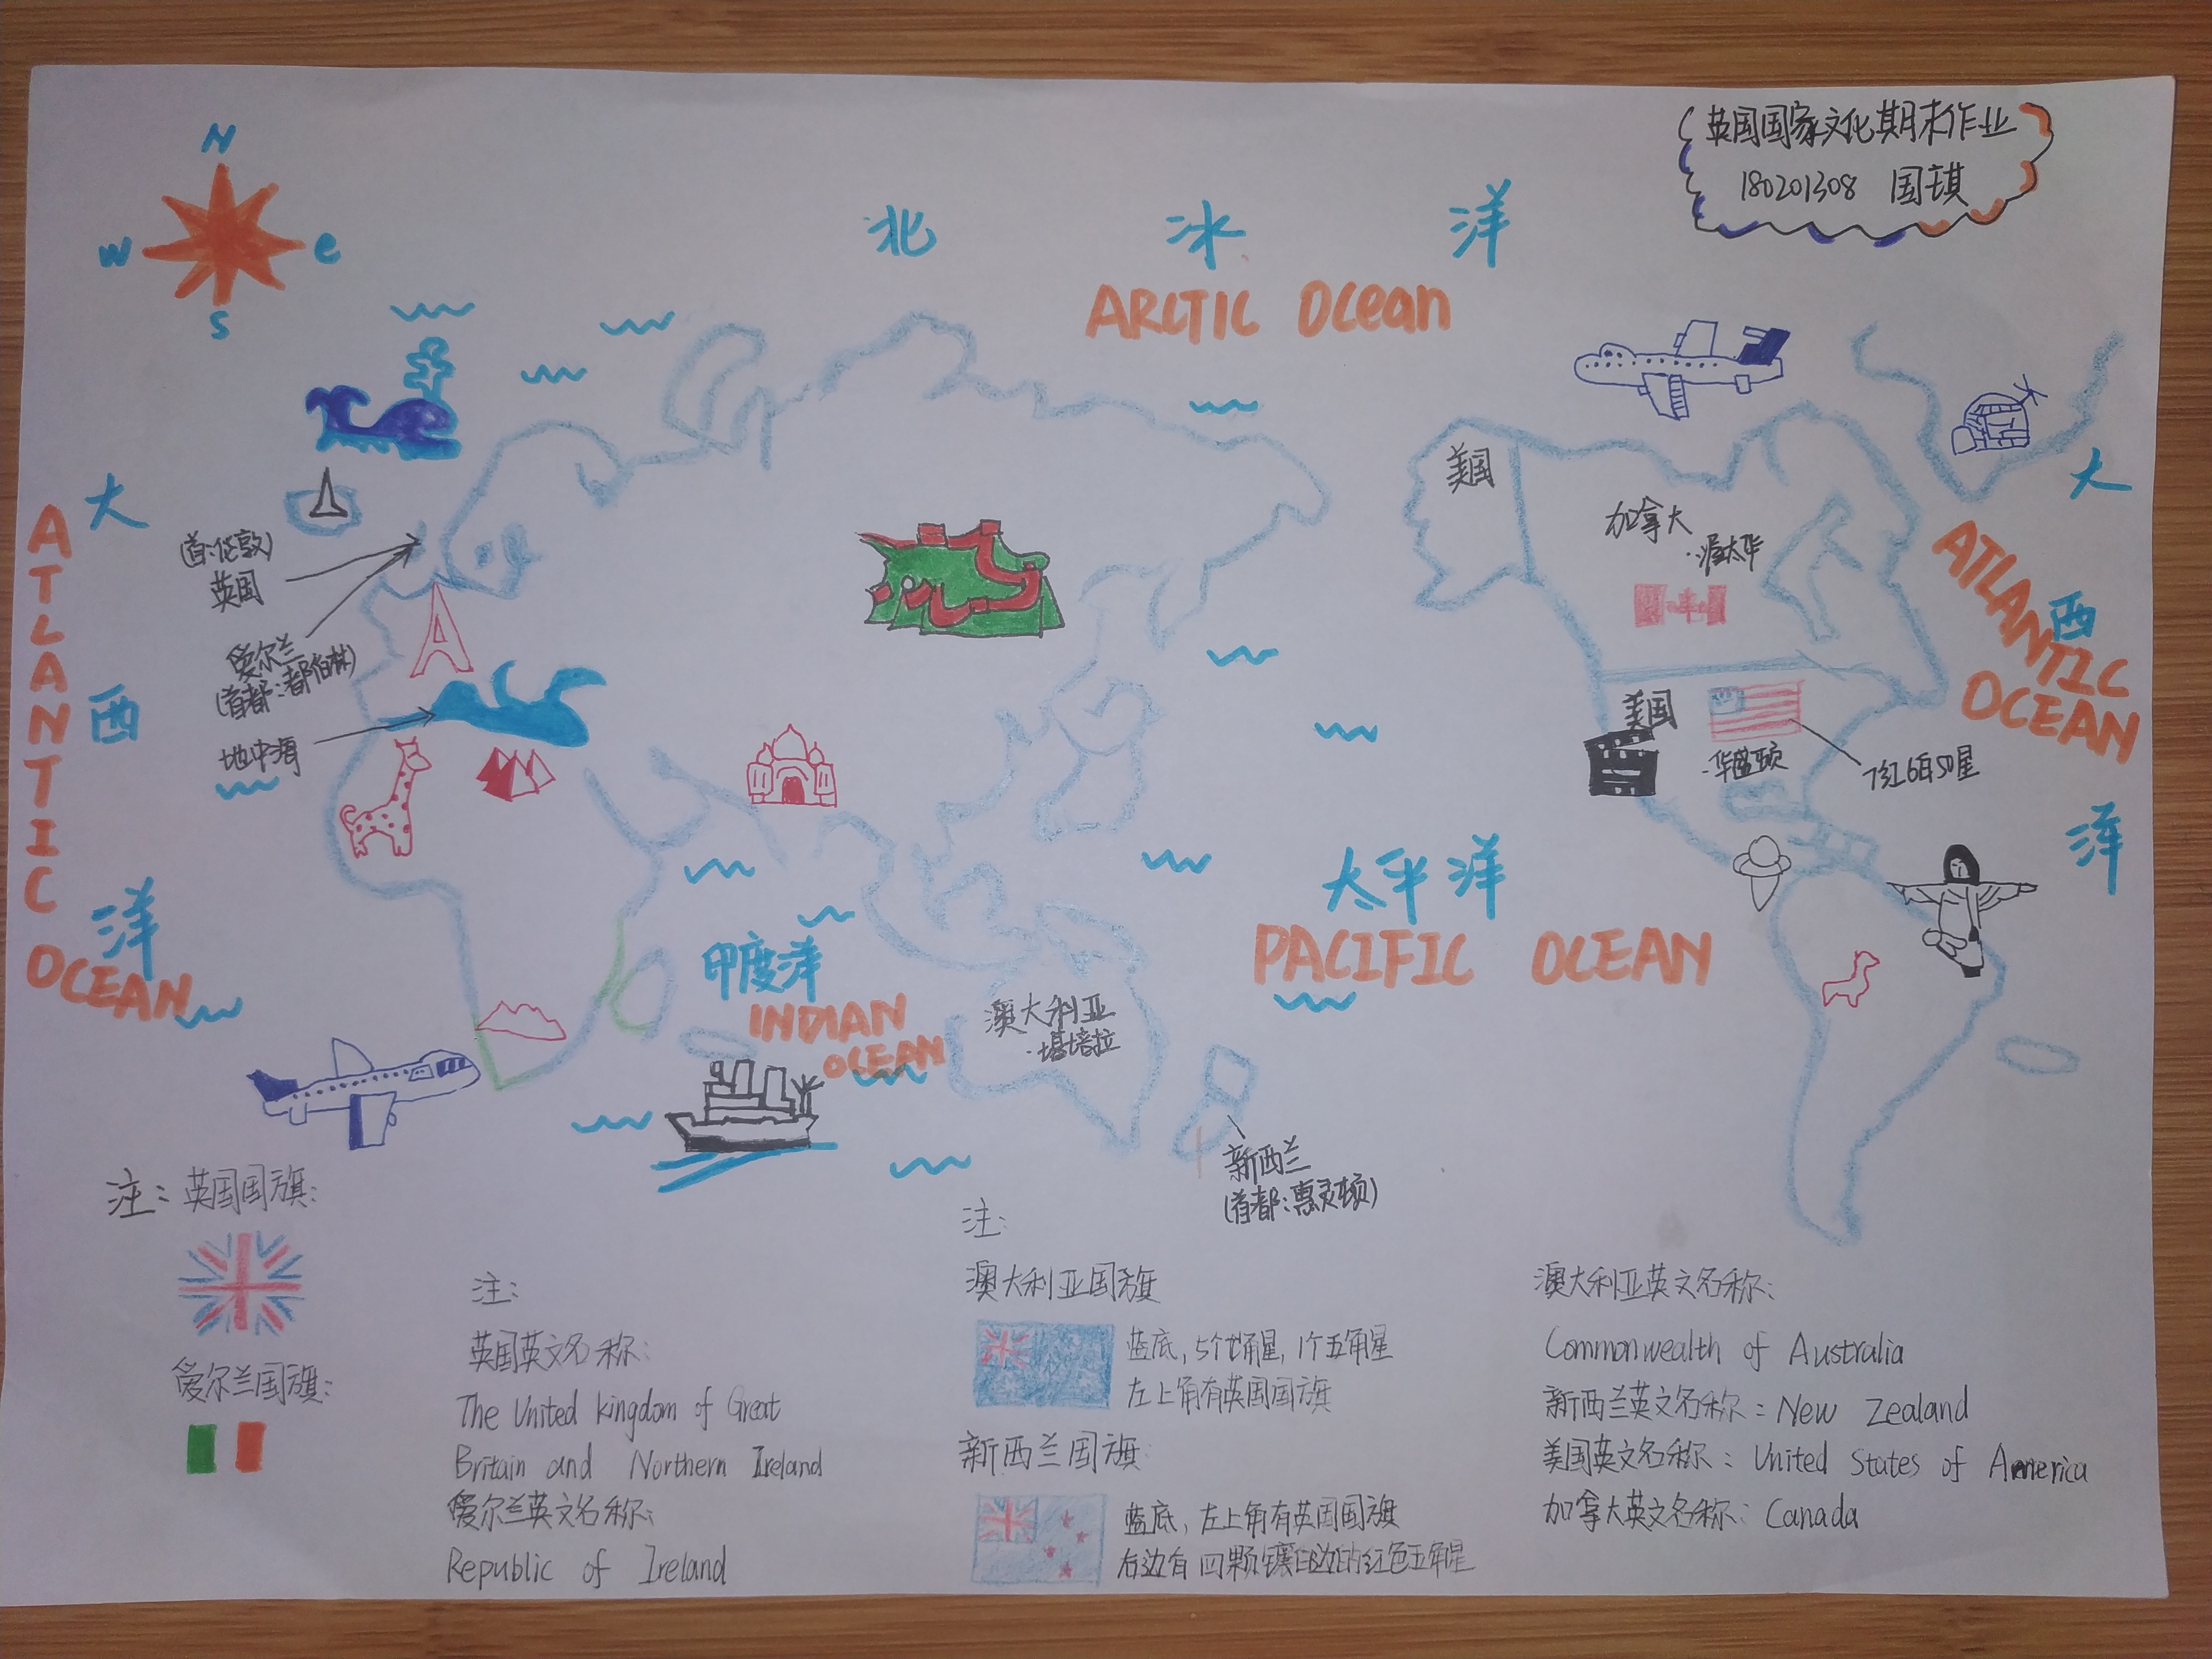 英国国家文化期末作业
180201308 国琪
N
W e
S
北 冰 洋
ARCTIC Ocean
大 西 洋
ATLANTIC OCEAN
(首:伦敦)
英国
爱尔兰
(首都:都伯林)
地中海
美国
加拿大
·渥太华
美国
·华盛顿
7红6白50星
大 西 洋
ATLANTIC
OCEAN
太平洋
PACIFIC OCEAN
印度洋
INDIAN
OCEAN
澳大利亚
·堪培拉
新西兰
(首都:惠灵顿)
注:英国国旗:
爱尔兰国旗:
注:
英国英文名称:
The United kingdom of Great
Britain and Northern Ireland
爱尔兰英文名称:
Republic of Ireland
注:
澳大利亚国旗
蓝底,5个七角星,1个五角星
左上角有英国国旗
新西兰国旗:
蓝底,左上角有英国国旗
右边有四颗镶白边的红色五角星
澳大利亚英文名称:
Commonwealth of Australia
新西兰英文名称:New Zealand
美国英文名称:United States of America
加拿大英文名称:Canada